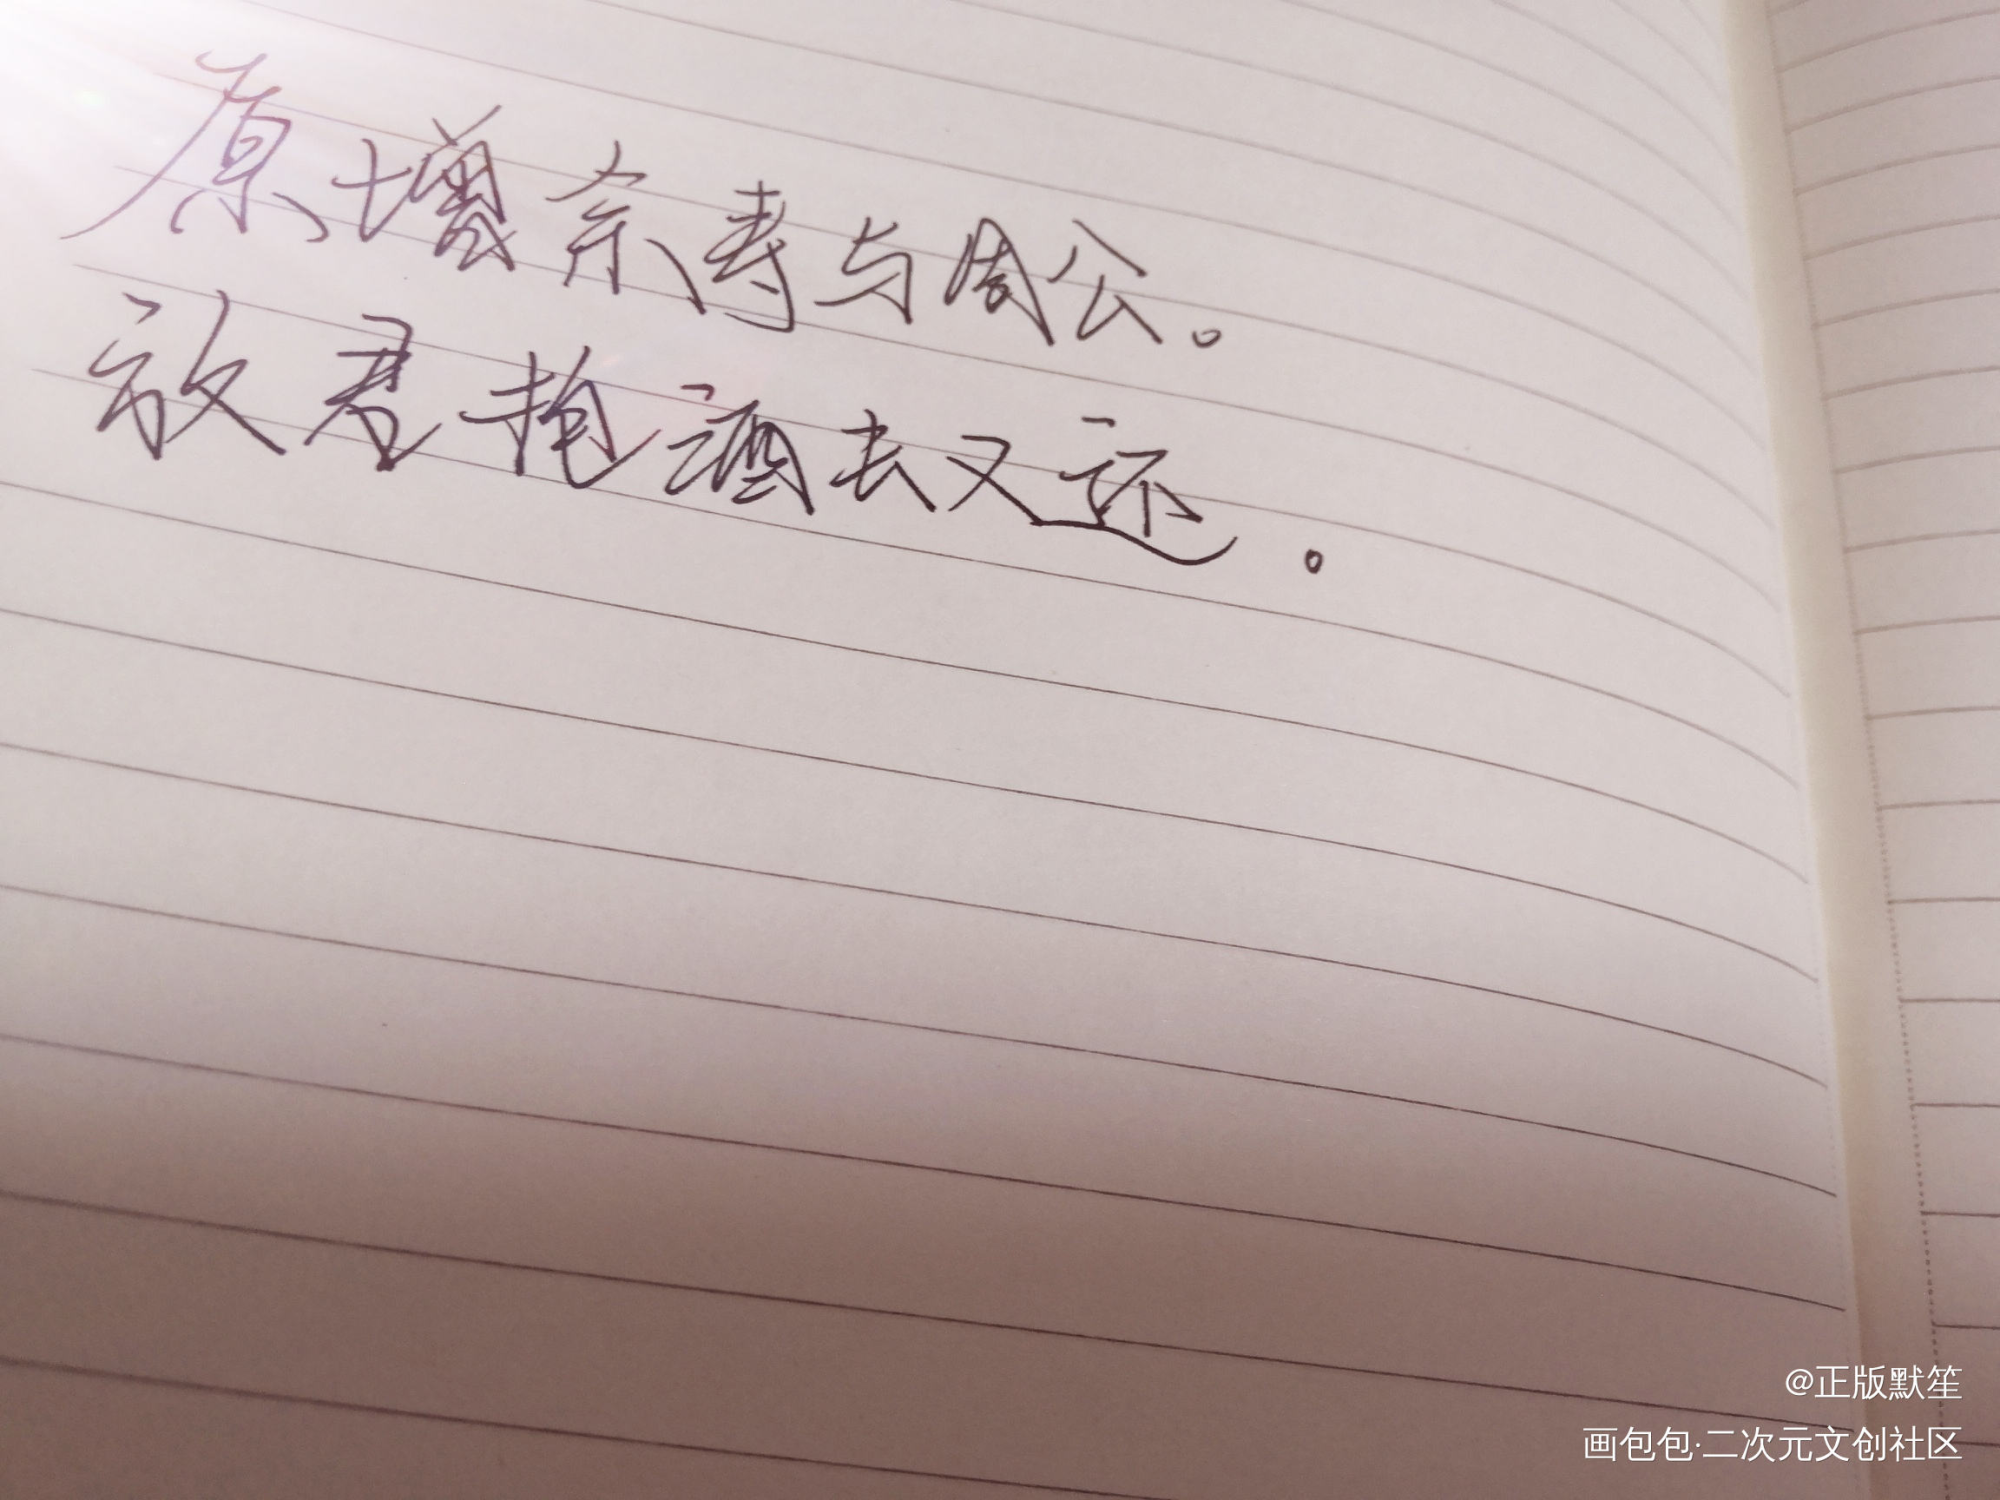 原增余寿与周公。
放君抱酒去又还。
@正版默笙
画包包·二次元文创社区